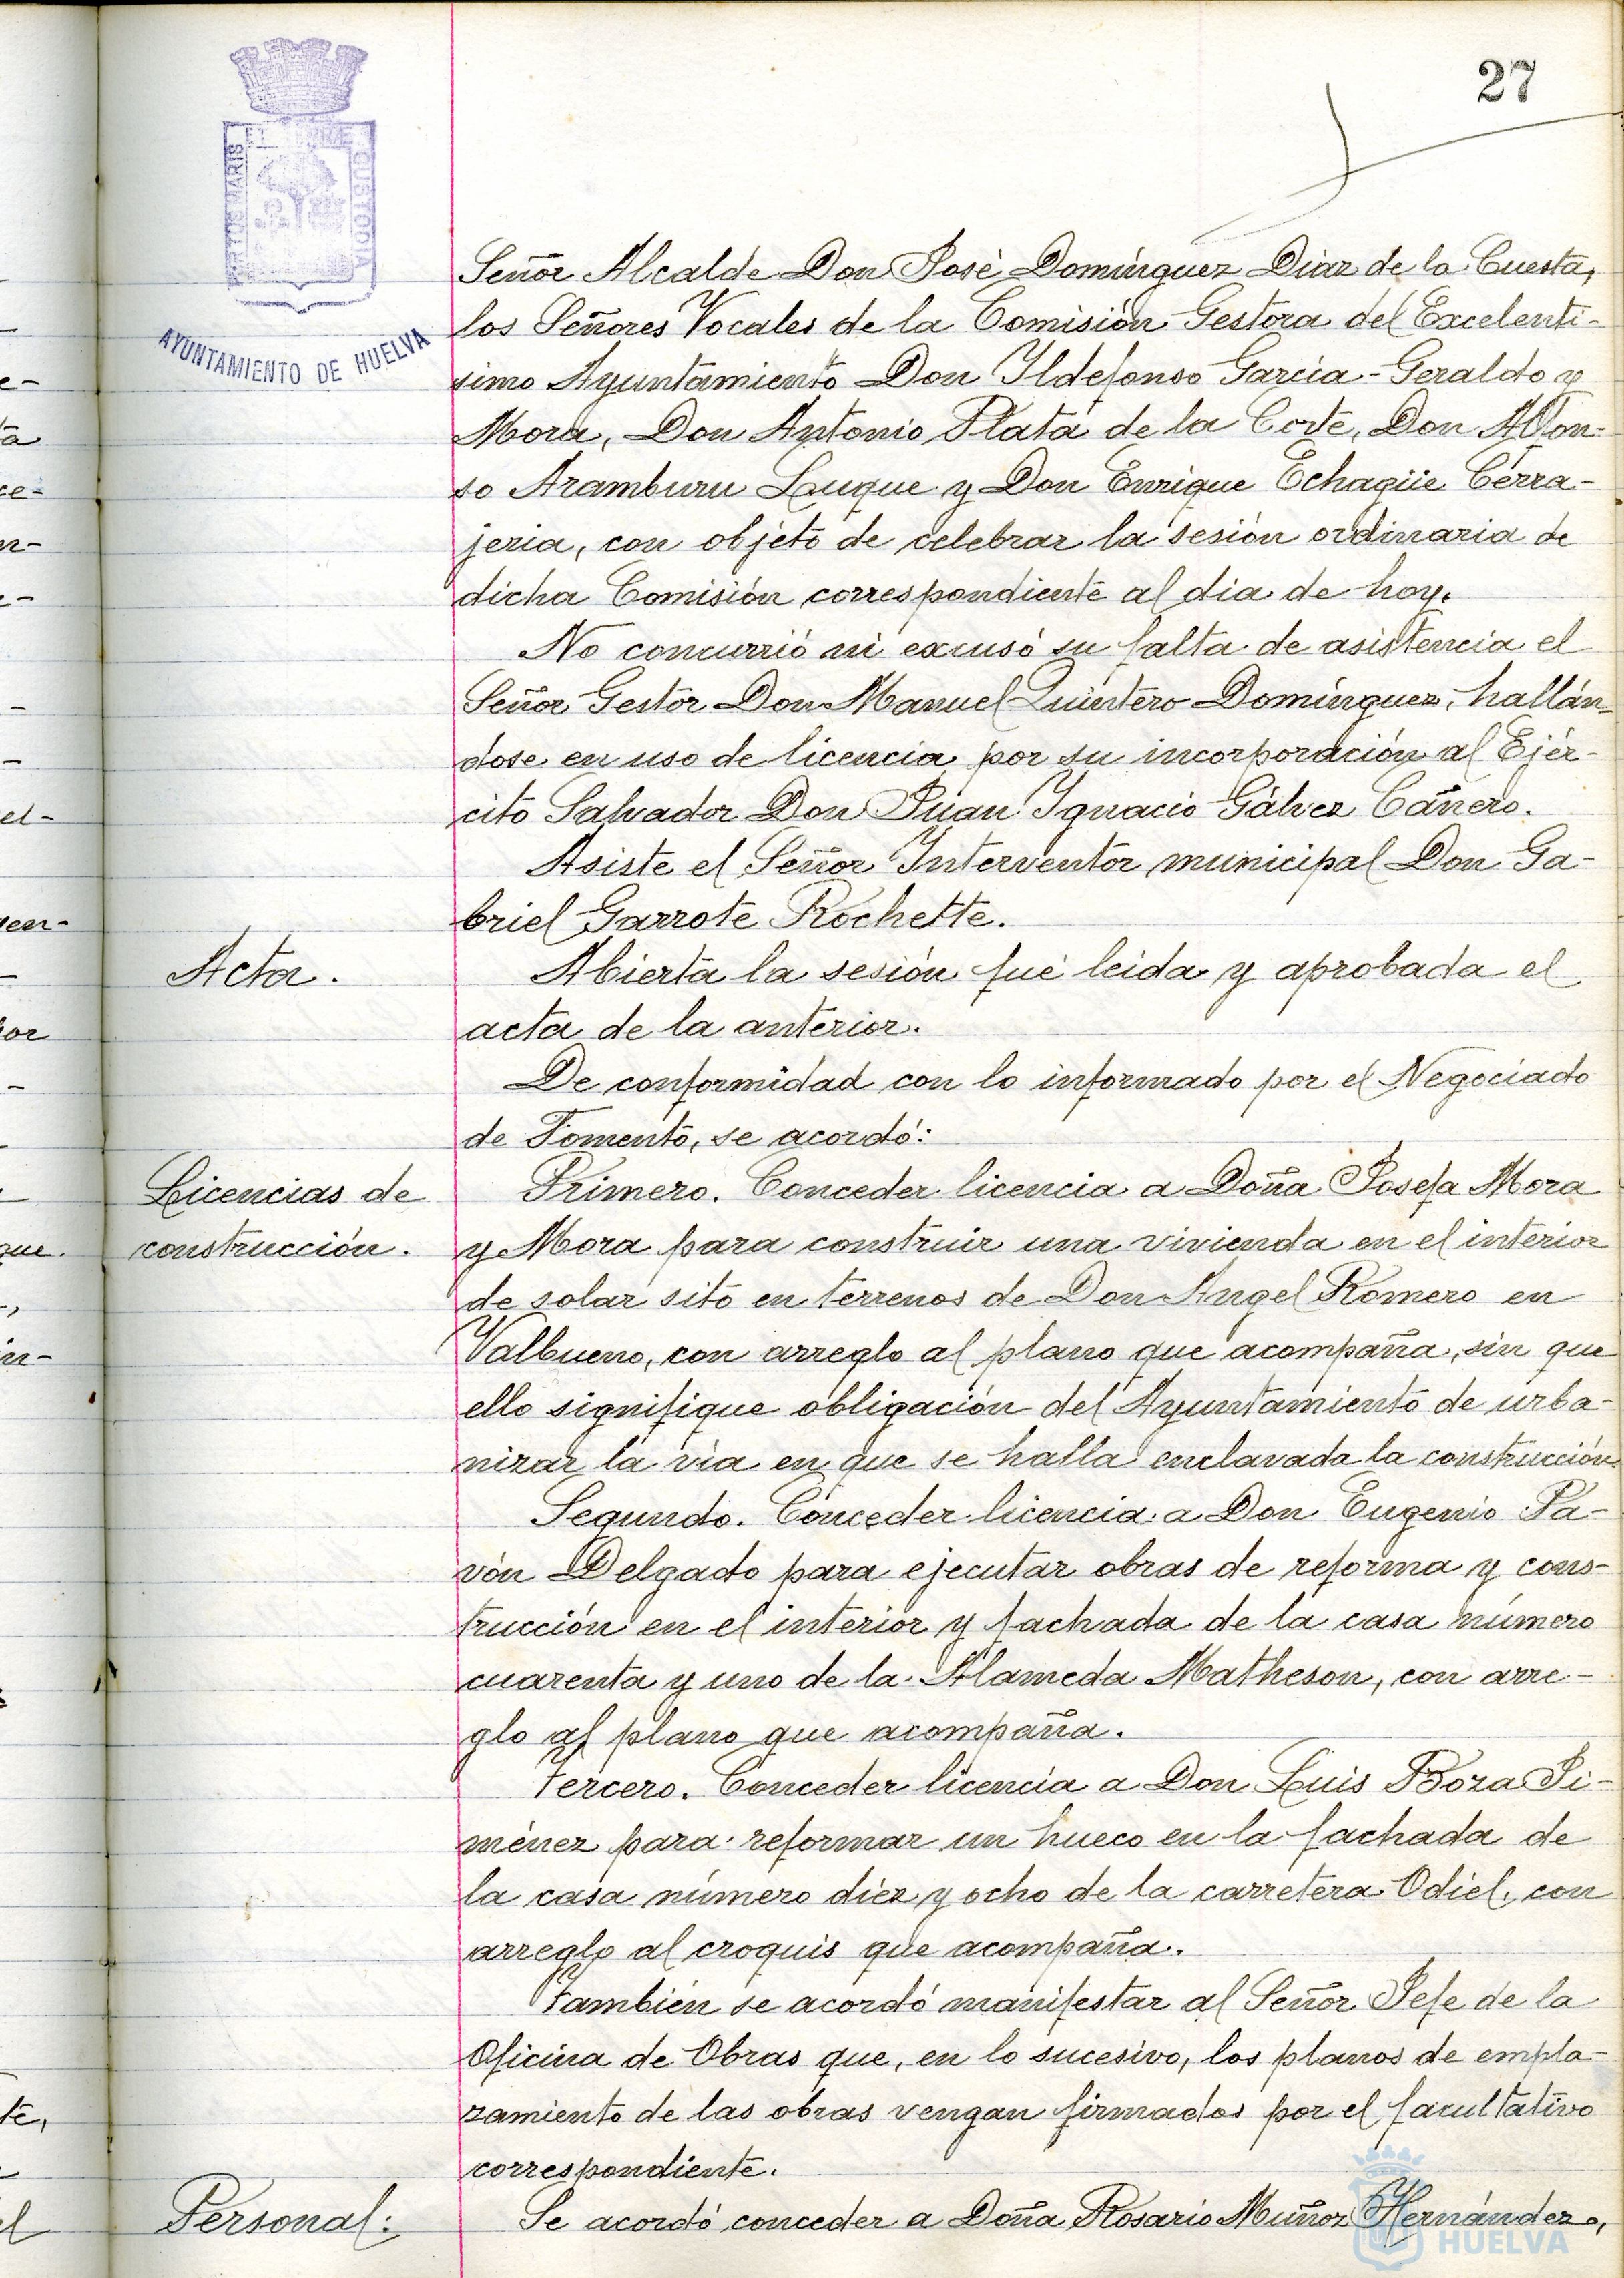 27
PORTUS MARIS ET TERRE CUSTODIA
AYUNTAMIENTO DE HUELVA
Señor Alcalde Don José Domínguez Díaz de la Cuesta,
los Señores Vocales de la Comisión Gestora del Excelentí-
simo Ayuntamiento Don Ildefonso García-Geraldo y
Mora, Don Antonio Plata de la Corte, Don Alfon-
so Aramburu Luque y Don Enrique Echagüe Cerra-
jería, con objeto de celebrar la sesión ordinaria de
dicha Comisión correspondiente al dia de hoy.
No concurrió ni excusó su falta de asistencia el
Señor Gestor Don Manuel Quintero Domínguez, hallán-
dose en uso de licencia por su incorporación al Ejér-
cito Salvador Don Juan Ignacio Gálvez Cañero.
Asiste el Señor Interventor municipal Don Ga-
briel Garrote Rochette.
Acta.
Abierta la sesión fué leida y aprobada el
acta de la anterior.
De conformidad con lo informado por el Negociado
de Fomento, se acordó:
Licencias de
construcción.
Primero. Conceder licencia a Doña Josefa Mora
y Mora para construir una vivienda en el interior
de solar sito en terrenos de Don Angel Romero en
Valbueno, con arreglo al plano que acompaña, sin que
ello signifique obligación del Ayuntamiento de urba-
nizar la vía en que se halla enclavada la construcción.
Segundo. Conceder licencia a Don Eugenio Pa-
vón Delgado para ejecutar obras de reforma y cons-
trucción en el interior y fachada de la casa número
cuarenta y uno de la Alameda Matheson, con arre-
glo al plano que acompaña.
Tercero. Conceder licencia a Don Luis Boza Ji-
ménez para reformar un hueco en la fachada de
la casa número diez y ocho de la carretera Odiel, con
arreglo al croquis que acompaña.
También se acordó manifestar al Señor Jefe de la
Oficina de Obras que, en lo sucesivo, los planos de empla-
zamiento de las obras vengan firmados por el facultativo
correspondiente.
Personal:
Se acordó conceder a Doña Rosario Muñoz Hernández,
HUELVA